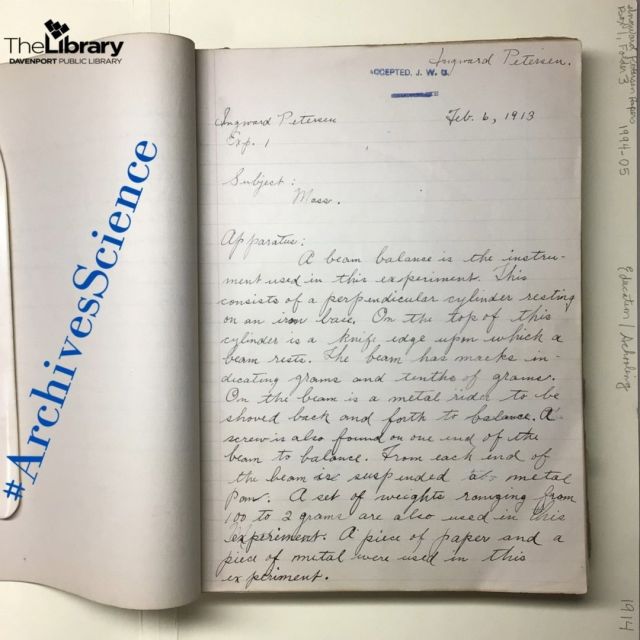 TheLibrary
DAVENPORT PUBLIC LIBRARY
#ArchivesScience
Ingward Petersen.
ACCEPTED, J. W. G.
Ingward Petersen
Feb. 6, 1913
Exp. 1
Subject:
Mass.
Apparatus:
A beam balance is the instru-
ment used in this experiment. This
consists of a perpendicular cylinder resting
on an iron base. On the top of this
cylinder is a knife edge upon which a
beam rests. The beam has marks in-
dicating grams and tenths of grams.
On the beam is a metal rider to be
shoved back and forth to balance. A
screw is also found on one end of the
beam to balance. From each end of
the beam is suspended a metal
pan. A set of weights ranging from
100 to 2 grams are also used in this
experiment. A piece of paper and a
piece of metal were used in this
experiment.
Petersen Papers
Box 1, Folder 3
1994-05
Education / Schooling
1914